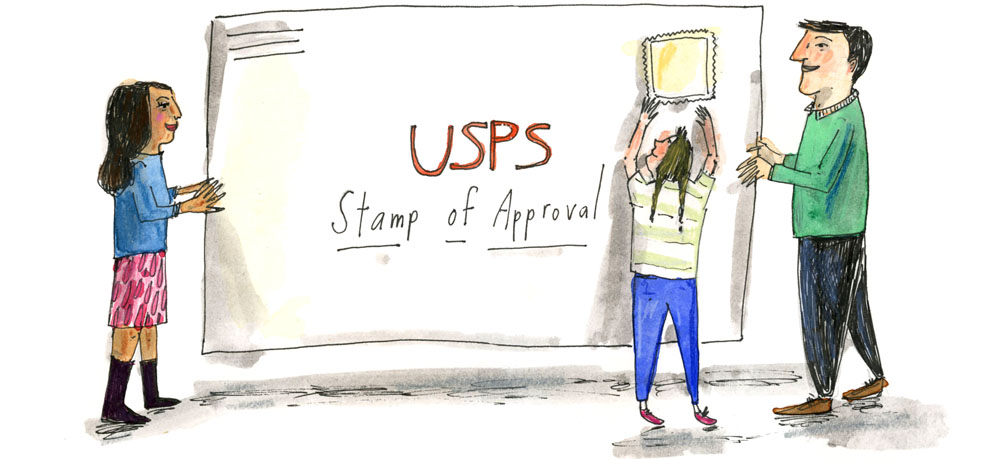 USPS
Stamp of Approval